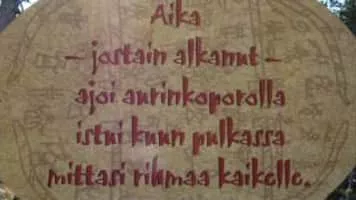 Aika
– jostain alkanut –
ajoi aurinkoporolla
istui kuun pulkassa
mittasi rihmaa kaikelle.